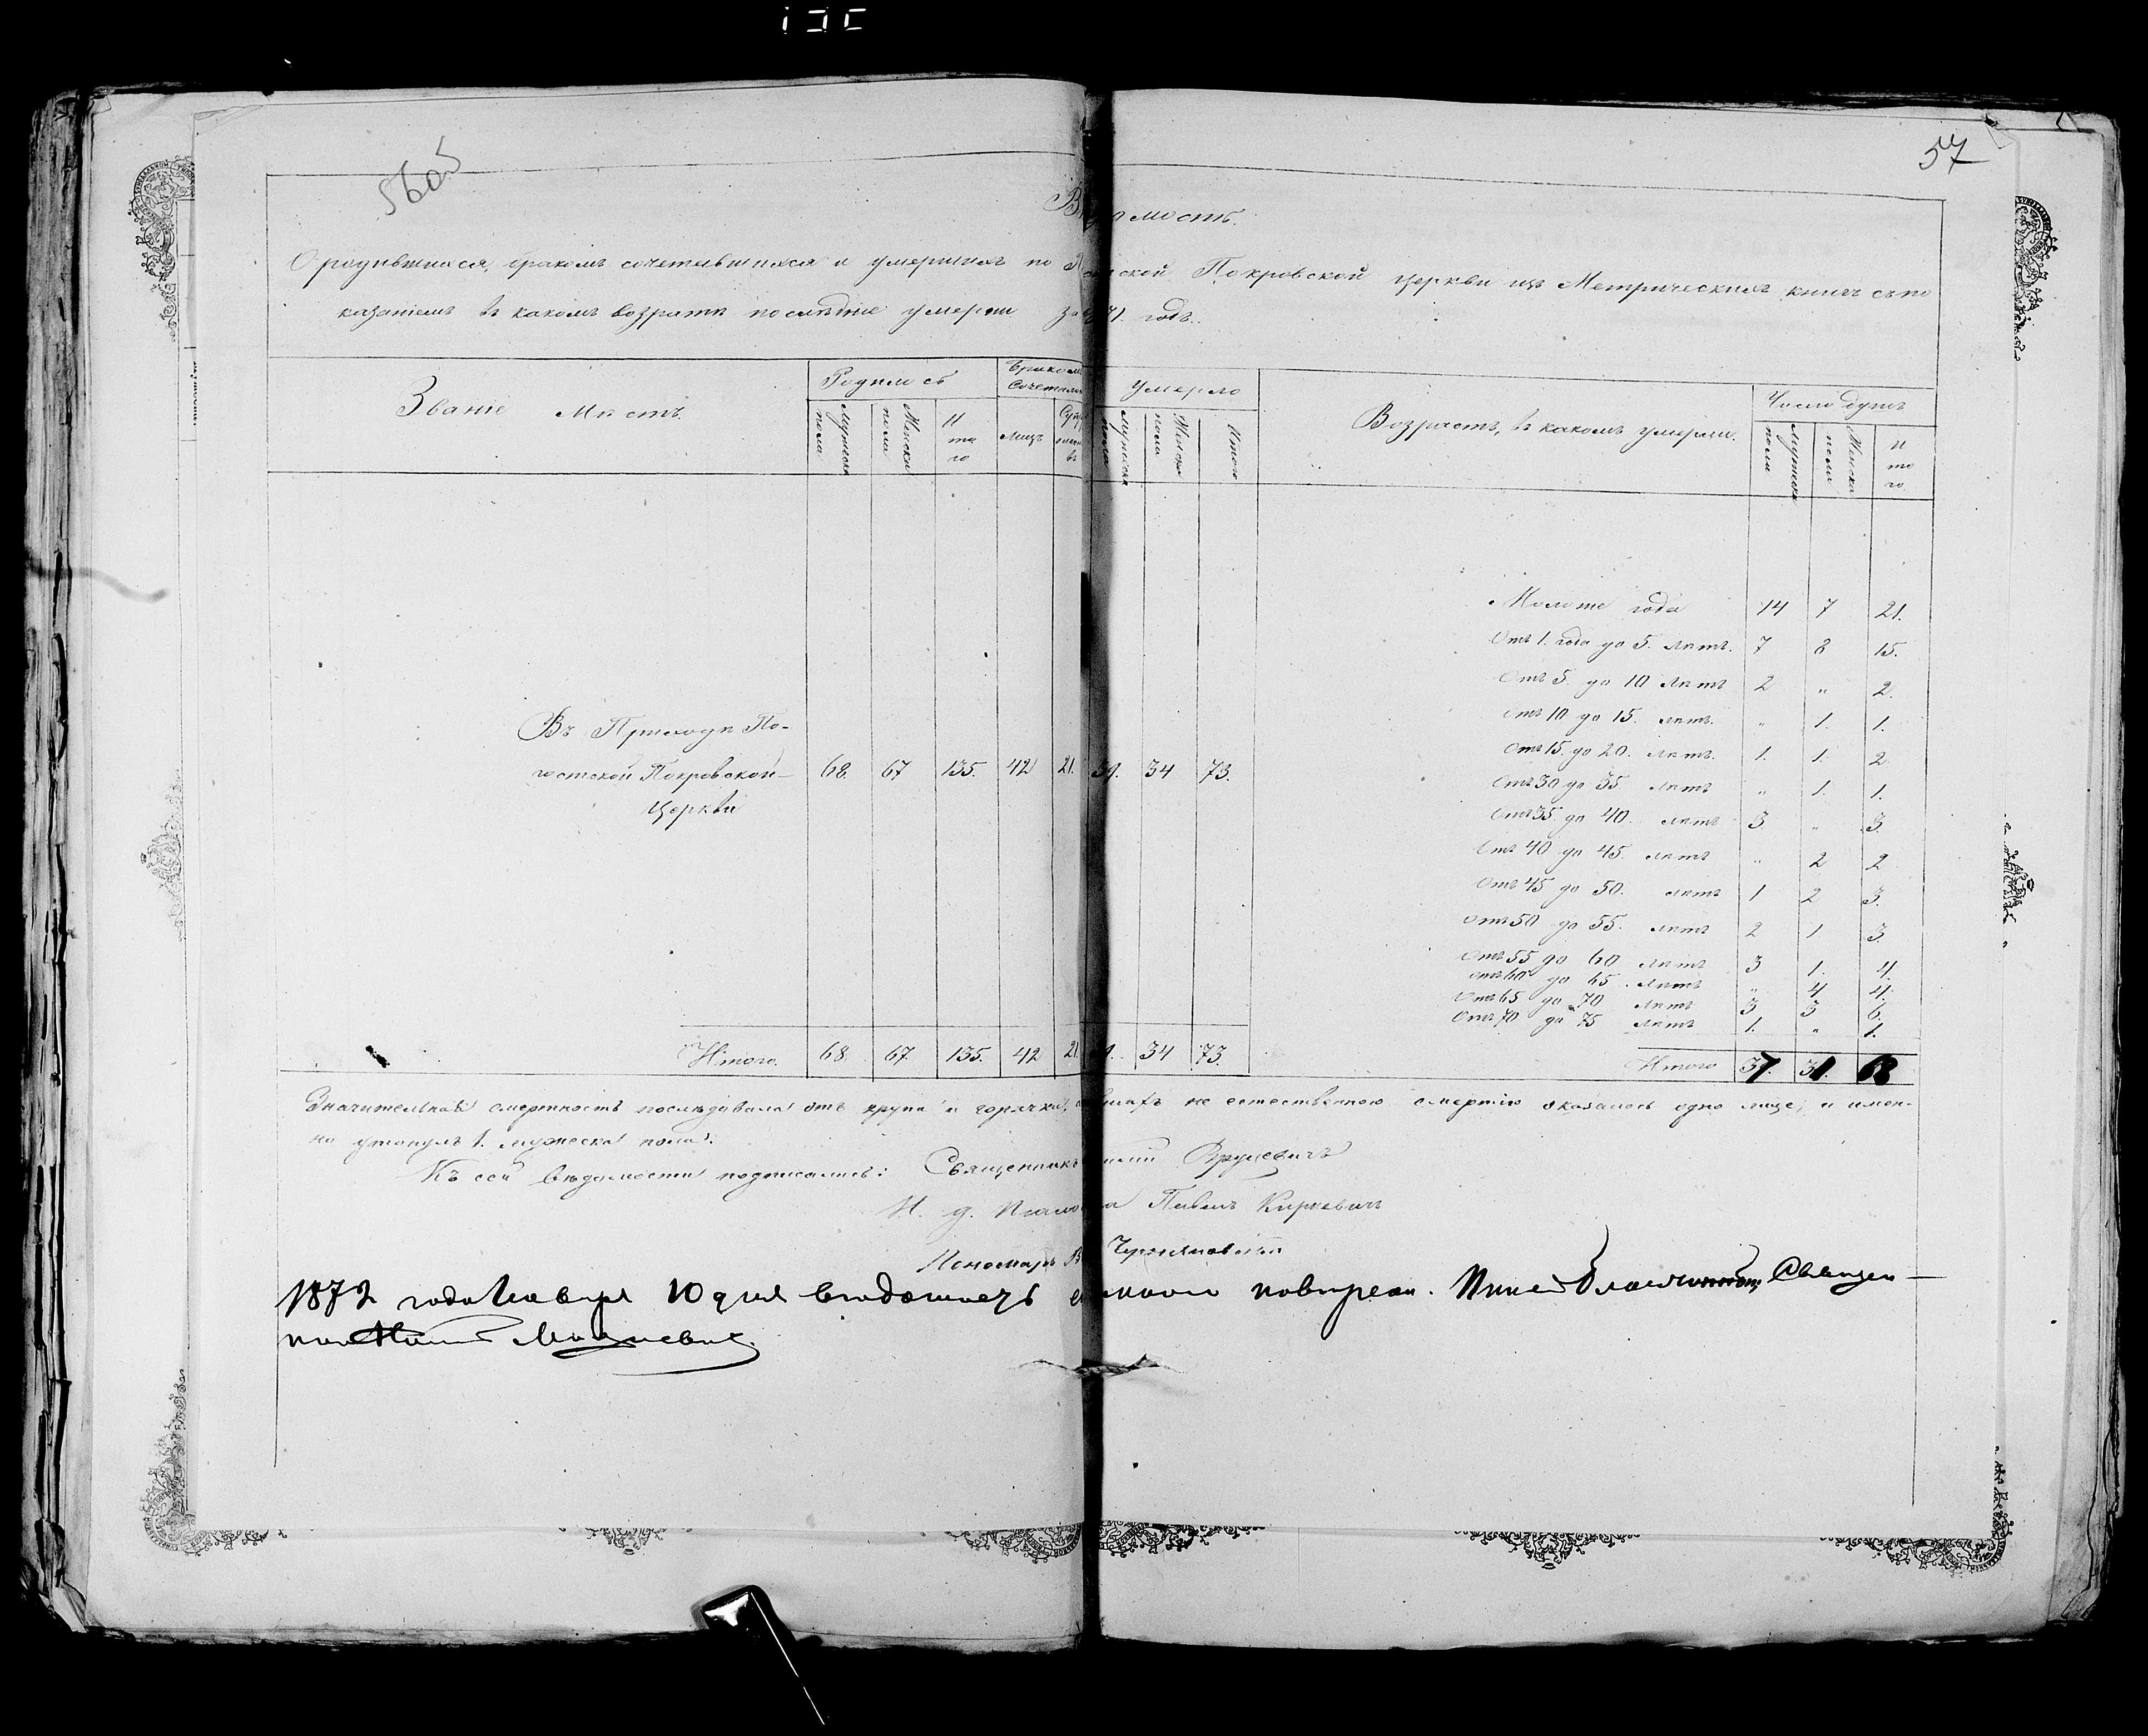 5605
57
мость.
О родившихся, бракомъ сочетавшихся и умершихъ по Покровской церкви изъ Метрическихъ книгъ съ по
казаніемъ въ какомъ возрастѣ послѣдніе умерли за 71. годъ.
Званіе Мѣстъ. Родилось Бракомъ Сочетал Умерло Возрастъ, въ какомъ умерли. Число душъ
Мужеска пола Женска пола И то го лицъ Мужеска пола Женска пола Итого Мужеска пола Женска пола И то го.
Моложе года 14 7 21.
Отъ 1. года до 5. лѣтъ. 7 8 15.
Отъ 5. до 10 лѣтъ 2 " 2.
Отъ 10 до 15. лѣтъ. " 1. 1.
Отъ 15. до 20. лѣтъ. 1. 1. 2
Отъ 30 до 35 лѣтъ " 1. 1.
Отъ 35. до 40. лѣтъ 3. " 3.
Отъ 40 до 45. лѣтъ " 2 2
Отъ 45 до 50. лѣтъ 1 2 3.
Отъ 50 до 55. лѣтъ 2 1 3
Отъ 55 до 60 лѣтъ 3 1. 4.
Отъ 60 до 65. лѣтъ " 4 4.
Отъ 65 до 70 лѣтъ 3 3 6.
Отъ 70 до 75 лѣтъ 1. " 1.
Въ Приходѣ По-
гостской Покровской
Церкви
68. 67 135. 42 21. 39. 34 73.
Итого. 68. 67. 135. 42 21. 34 73. Итого 37. 31. 68
Значительная смертность послѣдовала отъ крупа и горячки, не естественною смертію оказалось одно лице, и имен-
но утонулъ 1. мужеска пола.
Къ сей вѣдомости подписались: Священникъ
И. д. Павелъ Киркевичъ
Пономарь
1872 года Января 10 дня